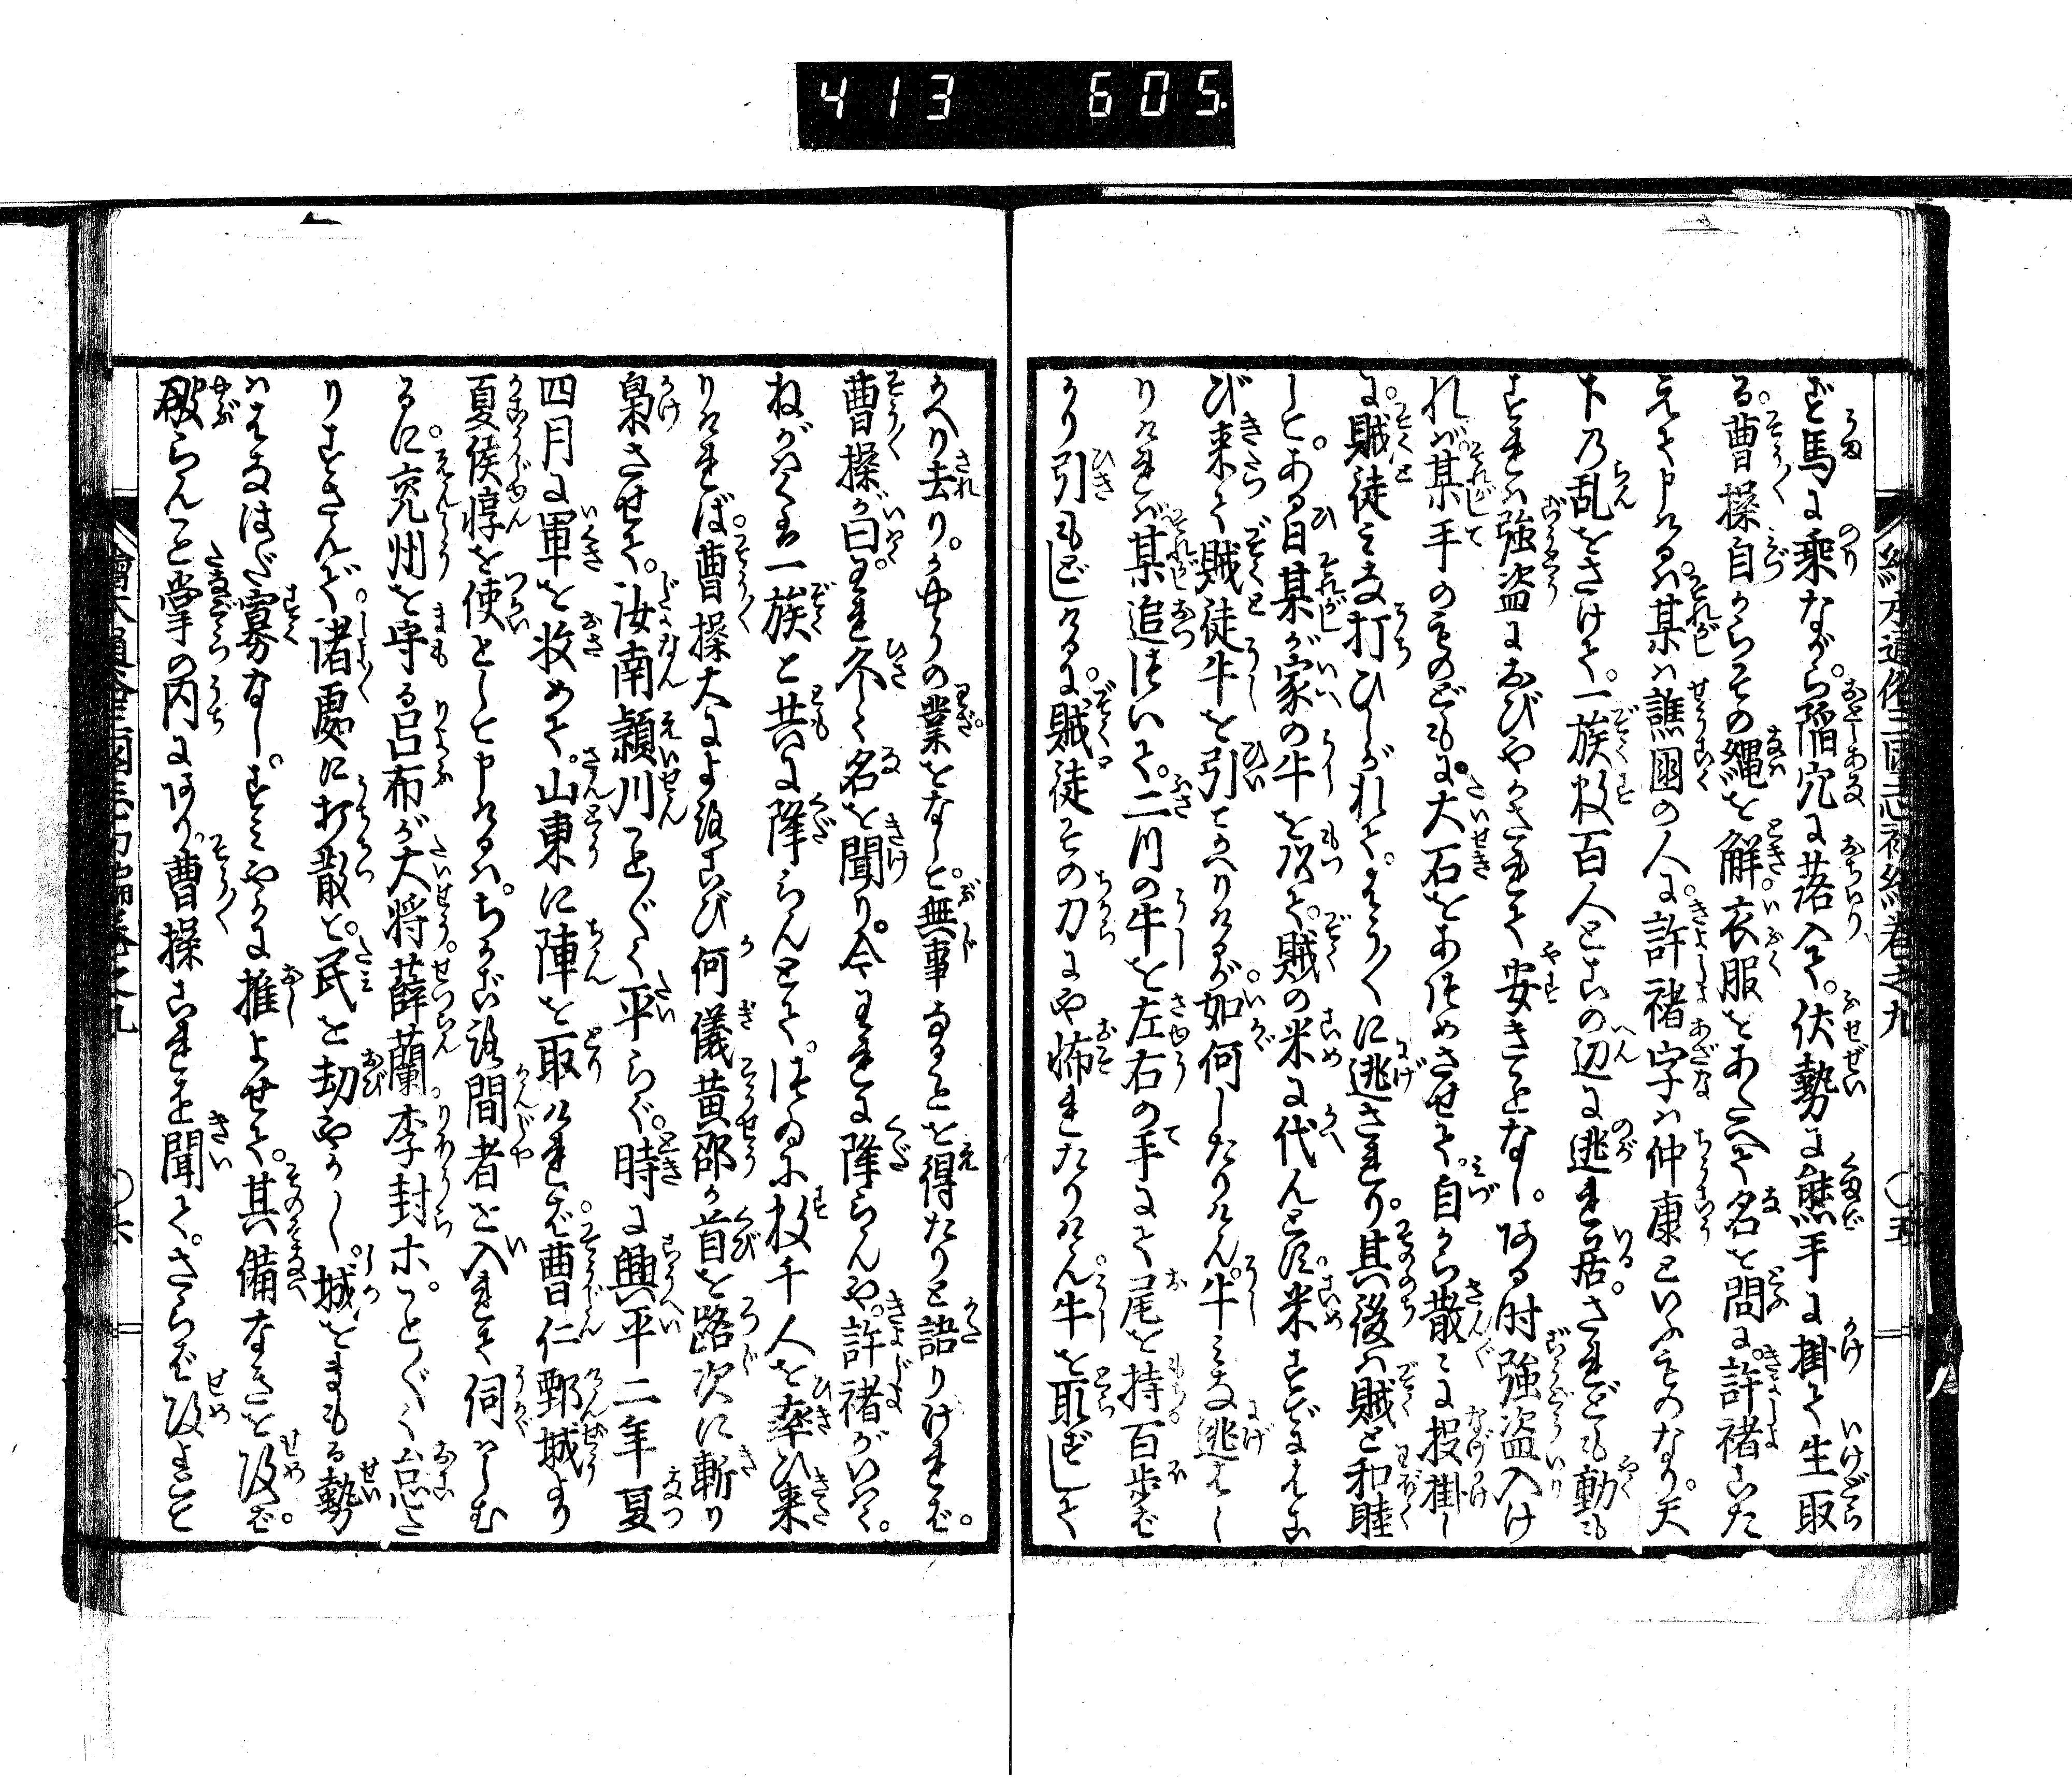 413 605
繪本通俗三國志初編巻之九 〇五
ど馬に乗ながら。陥穴に落入て。伏勢に熊手に掛て生取
る。曹操自からその縄を解。衣服をあたへて名を問に。許褚こた
へて申けるハ。某ハ譙國の人に。許褚字ハ仲康といふものなり。天
下の乱をさけて。一族数百人とこの辺に逃れ居。されども動も
すれハ強盗におびやかされて安きことなし。ある时強盗入け
れバ。某手のものどもに。大石をあつめさせて。自から散々に投掛し
に。賊徒ミな打ひしがれて。そう〳〵に逃されり。其後ハ賊と和睦
して。ある日某が家の牛を以て。賊の米に代んとす。米すでにはこ
び来て賊徒牛を引てかへりけるが。如何したりけん。牛ミな逃はし
りけれバ。某追つひて。二疋の牛を左右の手にて尾を持。百歩ば
かり引もどしけるに。賊徒その力にや怖れたりけん牛を取ずして
かへり去り。かやうの業をなして。無事なることを得たりと語りければ。
曹操が曰。われ久しく名を聞り。今われに降らんや。許褚がいはく。
ねがハくハ一族と共に降らんとて。つゐに数千人を率ひ来
りければ。曹操大によろこび何儀黄邵が首を路次に斬り
梟させて。汝南潁川こと〴〵く平らぐ。時に興平二年夏
四月に軍を收めて。山東に陣を取けれバ。曹仁鄄城より
夏侯惇を使として申けるハ。ちかごろ間者を入れて伺はしむ
るに。兗州を守る呂布が大将。薛蘭李封ホ。こと〴〵く怠た
りすさんで。諸處に打散て。民を劫やかし。城をまもる勢
ハはなはだ寡なし。すミやかに推よせて。其備なきを攻バ。
破らんこと掌の内にあり。曹操これを聞て。さらバ攻よとて
繪本通俗三國志初編巻之九 〇六